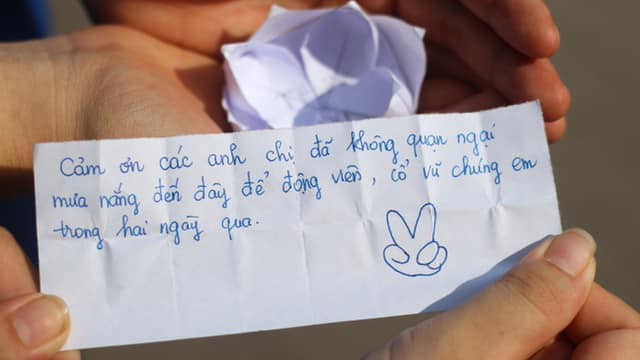 Cảm ơn các anh chị đã không quản ngại
mưa nắng đến đây để động viên, cổ vũ chúng em
trong hai ngày qua.